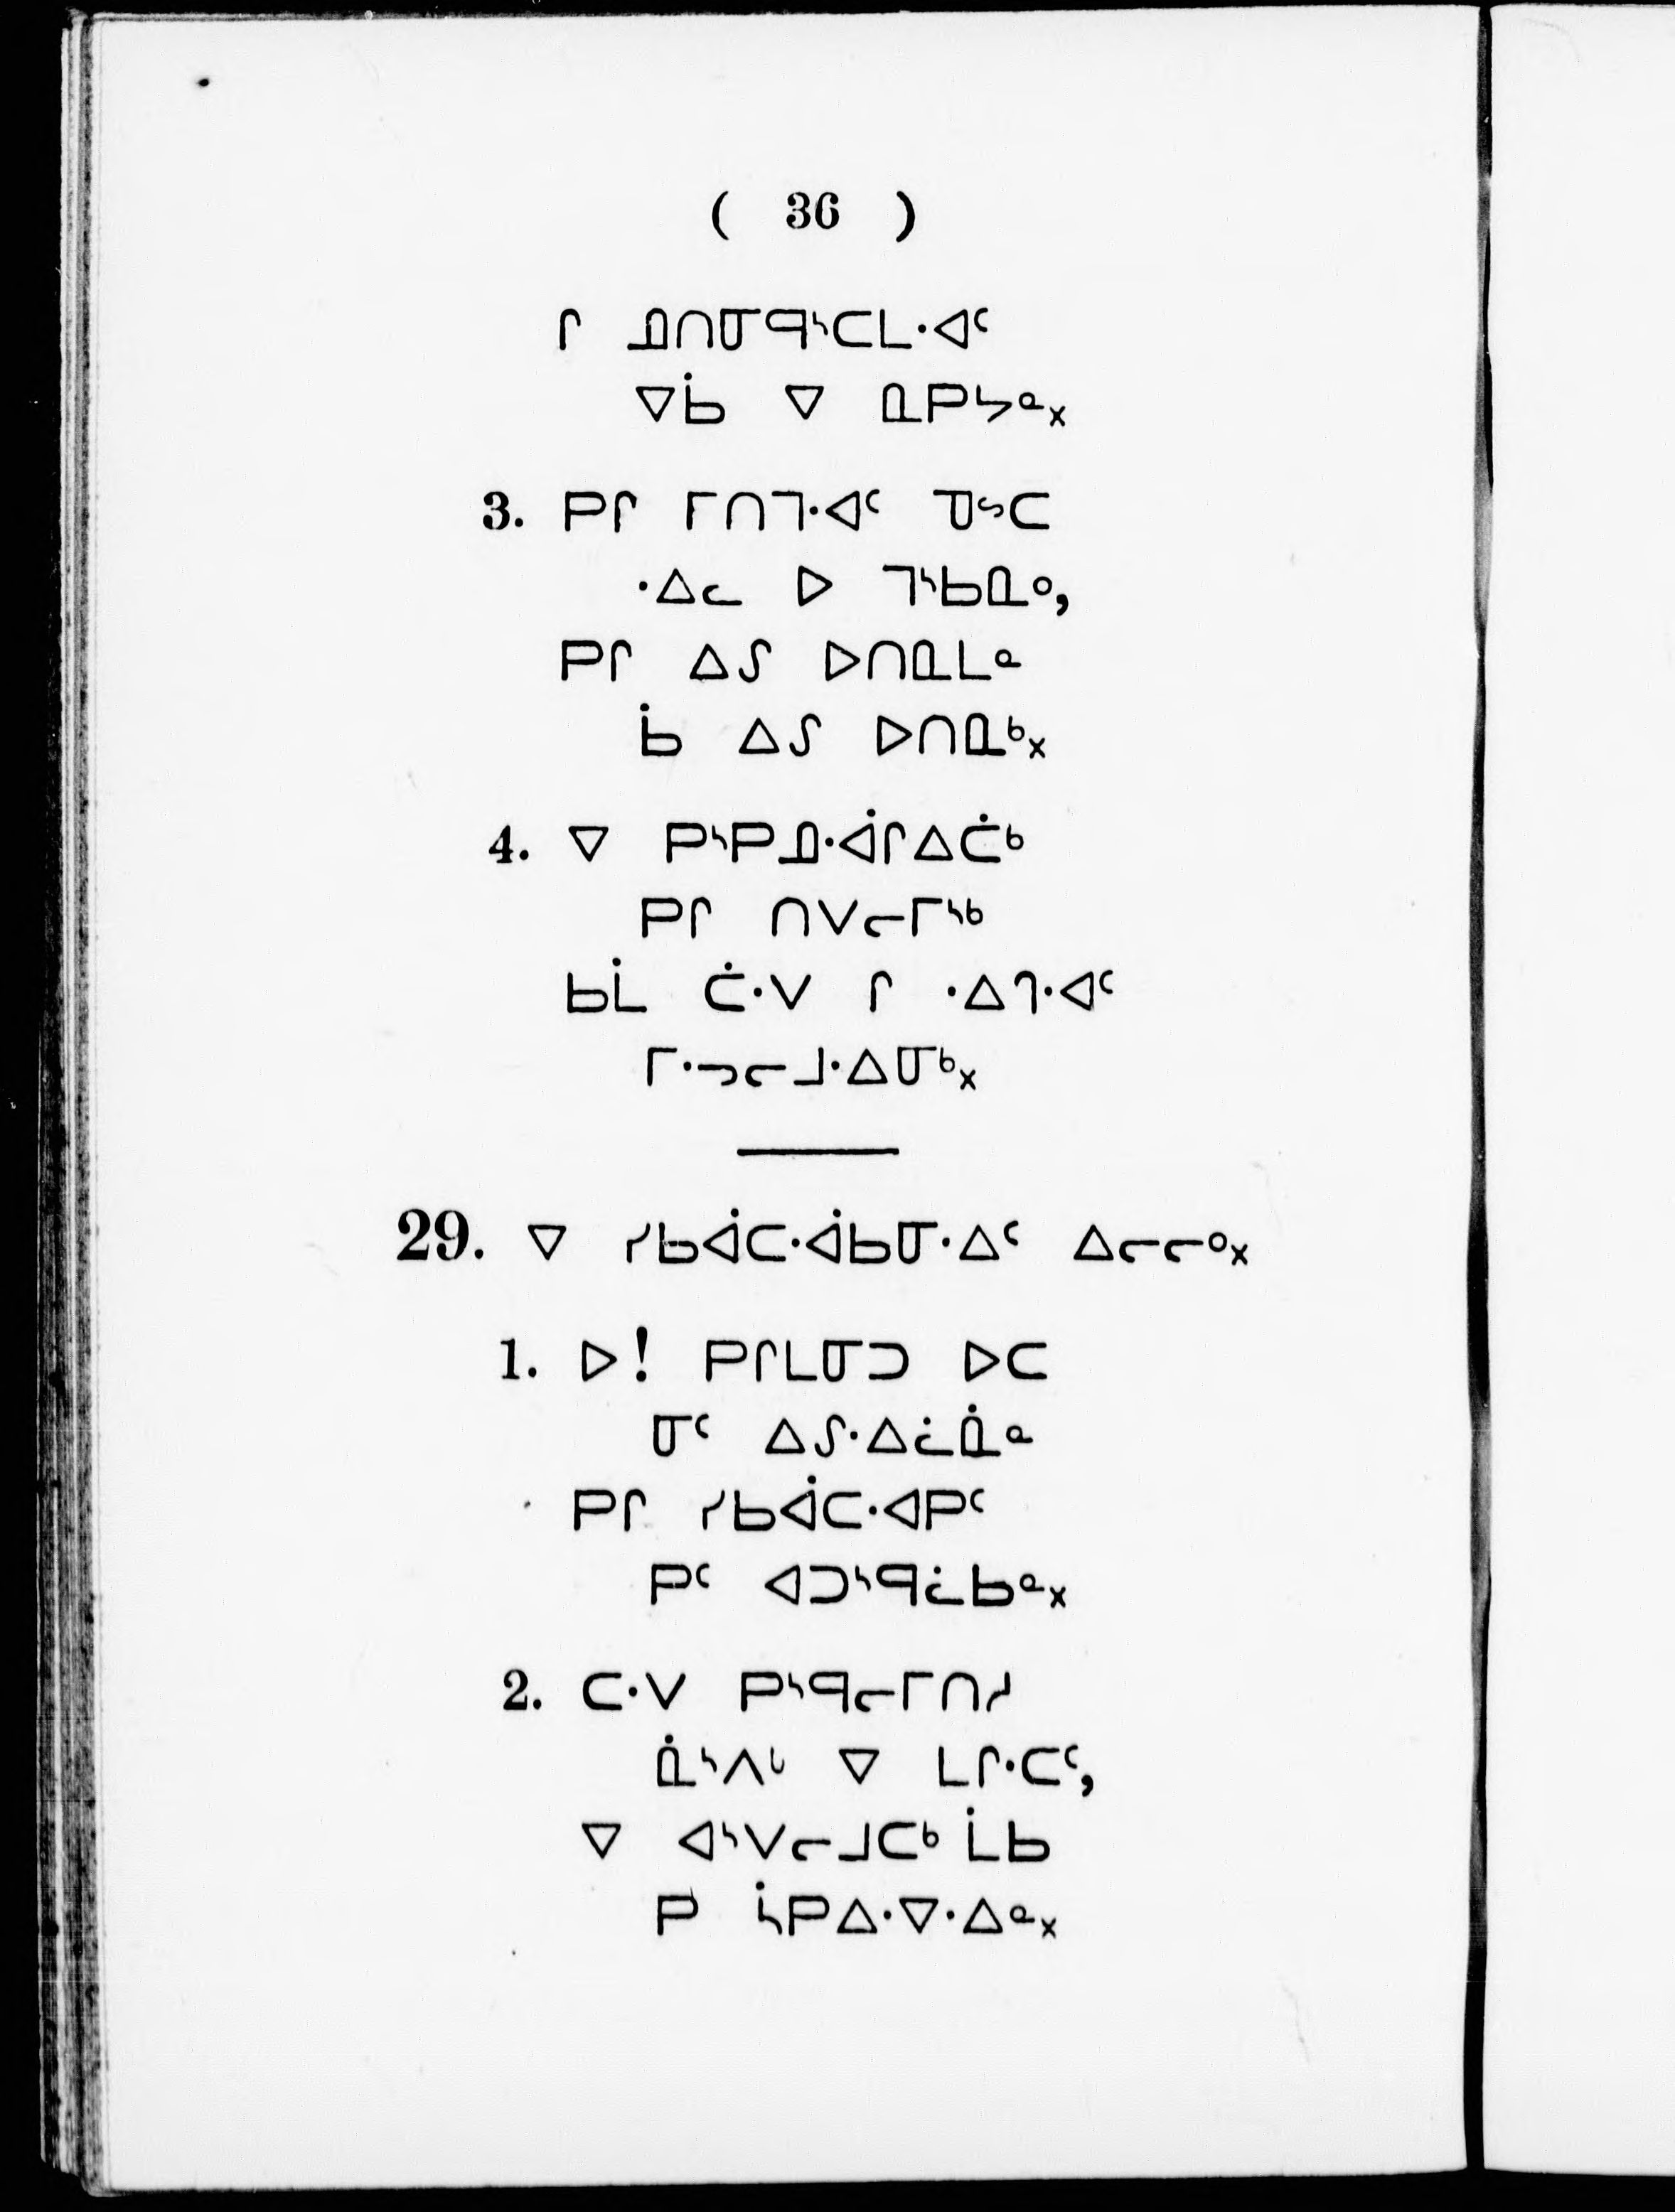 ( 36 )
ᒋ ᓄᑎᓂᑫᔅᑕᒪᐧᐊᑦ
ᐁᑳ ᐁ ᓇᑭᔭᓐ᙮
3. ᑭᒋ ᒥᑎᒣᐧᐊᑦ ᓀᔥᑕ
ᐧᐃᓚ ᐅ ᒣᔅᑲᓇᐤ,
ᑭᒋ ᐃᔑ ᐅᑎᓇᒪᓐ
ᑳ ᐃᔑ ᐅᑎᓇᒃ᙮
4. ᐁ ᑭᔅᑭᓄᐧᐋᒋᐃᑖᒃ
ᑭᒋ ᑎᐯᓕᒥᔅᒃ
ᑲᒫ ᑖᐧᐯ ᒋ ᐧᐃᒉᐧᐊᑦ
ᒥᐧᓗᓕᒧᐧᐃᓂᒃ᙮
29. ᐁ ᓯᑲᐋᑕᐧᐋᑲᓂᐧᐃᑦ ᐃᓕᓕᐤ᙮
1. ᐅ! ᑭᒋᒪᓂᑐ ᐅᑕ
ᓂᑦ ᐃᔑᐧᐃᓛᓈᓐ
ᑭᒋ ᓯᑲᐋᑕᐧᐊᑭᑦ
ᑭᑦ ᐊᑐᔅᑫᓛᑲᓐ᙮
2. ᑕᐧᐯ ᑭᔅᑫᓕᒥᑎᓱ
ᓈᔅᐱᒡ ᐁ ᒪᒋᐧᑕᑦ,
ᐁ ᐊᔅᐯᓕᒧᑕᒃ ᒫᑲ
ᑭ ᓵᑭᐃᐧᐁᐧᐃᓐ᙮